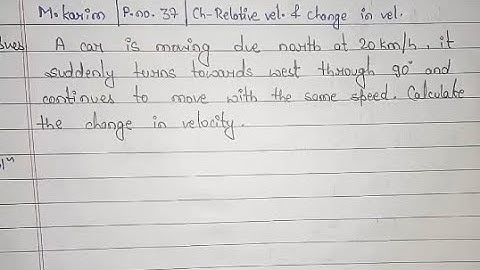 M.karim P.no. 37 Ch-Relative vel. & change in vel.
Ques A car is moving due north at 20 km/h, it
suddenly turns towards west through 90° and
continues to move with the same speed. Calculate
the change in velocity.